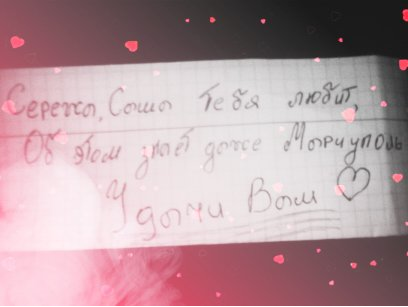 Сережа, Саша тебя любит,
Об этом знает даже Мариуполь
Удачи Вам ♡